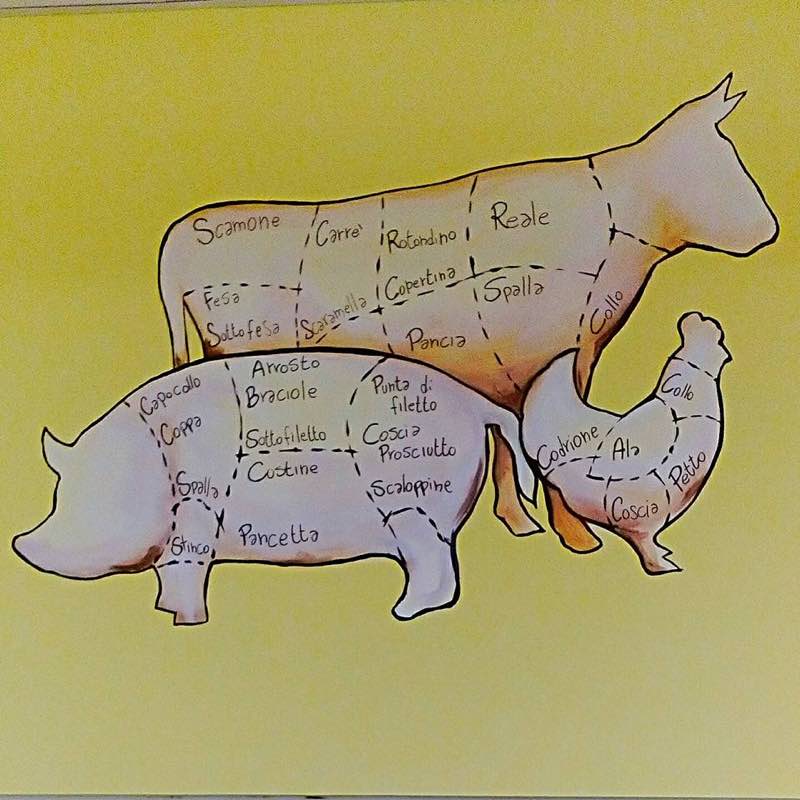 Scamone
Carrè
Rotondino
Reale
Fesa
Sottofesa
Scaramella
Copertina
Spalla
Pancia
Collo
Capocollo
Coppa
Spalla
Stinco
Arrosto
Braciole
Sottofiletto
Costine
Pancetta
Punta di
filetto
Coscia
Prosciutto
Scaloppine
Codrione
Ala
Collo
Petto
Coscia